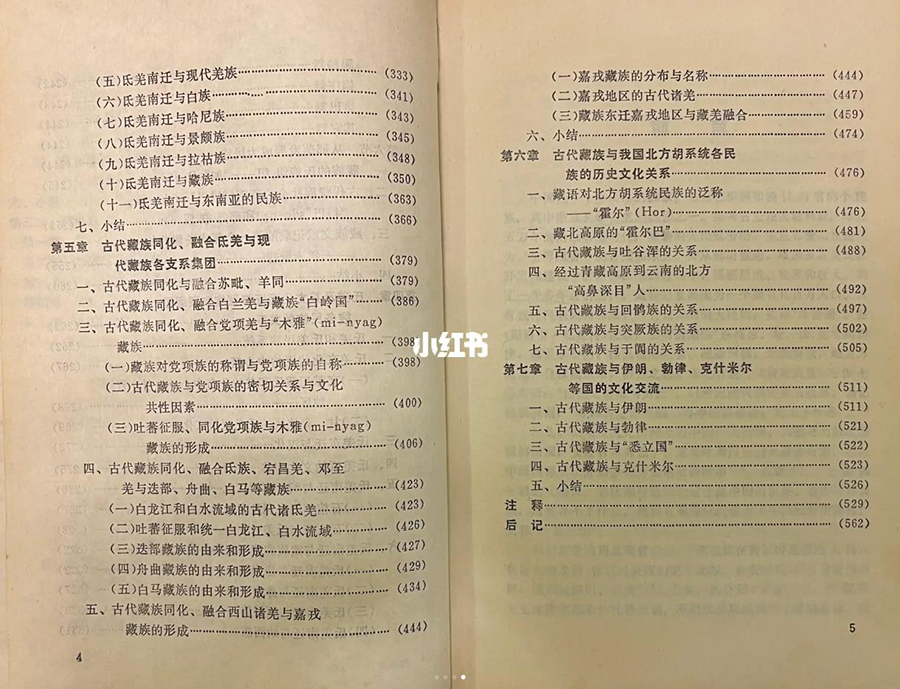 （五）氐羌南迁与现代羌族……………………（333）
（六）氐羌南迁与白族……………………（341）
（七）氐羌南迁与哈尼族……………………（343）
（八）氐羌南迁与景颇族……………………（345）
（九）氐羌南迁与拉祜族……………………（348）
（十）氐羌南迁与藏族……………………（350）
（十一）氐羌南迁与东南亚的民族……………………（363）
七、小结……………………（366）
第五章 古代藏族同化、融合氐羌与现
代藏族各支系集团……………………（379）
一、古代藏族同化与融合苏毗、羊同……………………（379）
二、古代藏族同化、融合白兰羌与藏族“白岭国”……（386）
三、古代藏族同化、融合党项羌与“木雅”(mi-nyag)
藏族……………………（398）
（一）藏族对党项族的称谓与党项族的自称…………（398）
（二）古代藏族与党项族的密切关系与文化
共性因素……………………（400）
（三）吐蕃征服、同化党项族与木雅(mi-nyag)
藏族的形成……………………（406）
四、古代藏族同化、融合氐族、宕昌羌、邓至
羌与迭部、舟曲、白马等藏族……………………（423）
（一）白龙江和白水流域的古代诸氐羌……………………（423）
（二）吐蕃征服和统一白龙江、白水流域……………………（426）
（三）迭部藏族的由来和形成……………………（427）
（四）舟曲藏族的由来和形成……………………（429）
（五）白马藏族的由来和形成……………………（434）
五、古代藏族同化、融合西山诸羌与嘉戎
藏族的形成……………………（444）
4
（一）嘉戎藏族的分布与名称……………………（444）
（二）嘉戎地区的古代诸羌……………………（447）
（三）藏族东迁嘉戎地区与藏羌融合……………………（459）
六、小结……………………（474）
第六章 古代藏族与我国北方胡系统各民
族的历史文化关系……………………（476）
一、藏语对北方胡系统民族的泛称
——“霍尔”(Hor)……………………（476）
二、藏北高原的“霍尔巴”……………………（481）
三、古代藏族与吐谷浑的关系……………………（488）
四、经过青藏高原到云南的北方
“高鼻深目”人……………………（492）
五、古代藏族与回鹘族的关系……………………（497）
六、古代藏族与突厥族的关系……………………（502）
七、古代藏族与于阗的关系……………………（505）
第七章 古代藏族与伊朗、勃律、克什米尔
等国的文化交流……………………（511）
一、古代藏族与伊朗……………………（511）
二、古代藏族与勃律……………………（521）
三、古代藏族与“悉立国”……………………（522）
四、古代藏族与克什米尔……………………（523）
五、小结……………………（526）
注 释……………………（529）
后 记……………………（562）
5
小红书